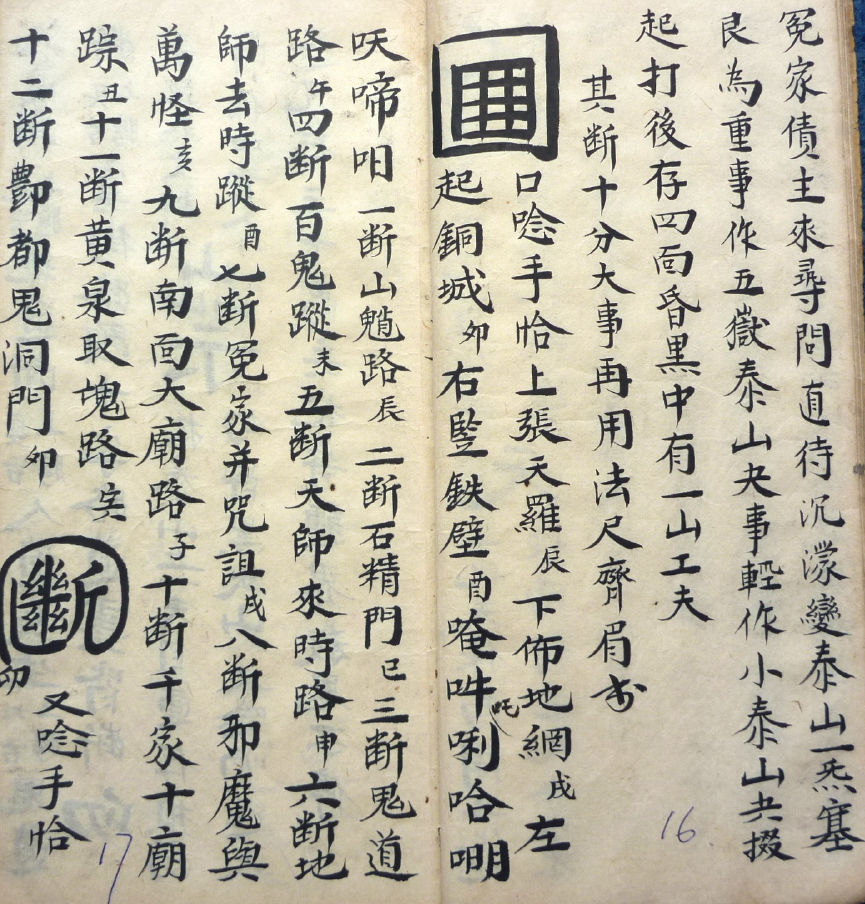 冤家債主來尋問直待沉濛變泰山一炁塞
艮為重事作五嶽泰山夬事輕作小泰山共掇
起打後存四面昏黑中有一山工夫
其断十分大事再用法尺齊眉
口唸手恰上張天羅辰下佈地網戌左
起銅城卯右竪鉄壁酉唵吽吒唎哈
吙啼呾一断山魈路辰二断石精門巳三断鬼道
路午四断百鬼蹤未五断天師來時路申六断地
師去時蹤酉七断冤家并咒詛戌八断邪魔與
萬怪亥九断南面大廟路子十断千家十廟
踪丑十一断黄泉取塊路寅
十二断酆都鬼洞門卯
斷
卯
又唸手恰
16
17